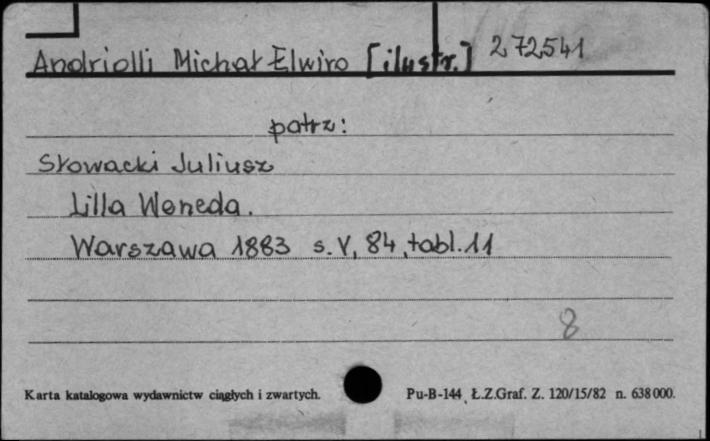 Andriolli Michał Elwiro [ilustr.] 272541
patrz:
Słowacki Juliusz
Lilla Weneda.
Warszawa 1883 s. V, 84, tabl. 11
8
Karta katalogowa wydawnictw ciągłych i zwartych. Pu-B-144, Ł.Z.Graf. Z. 120/15/82 n. 638 000.